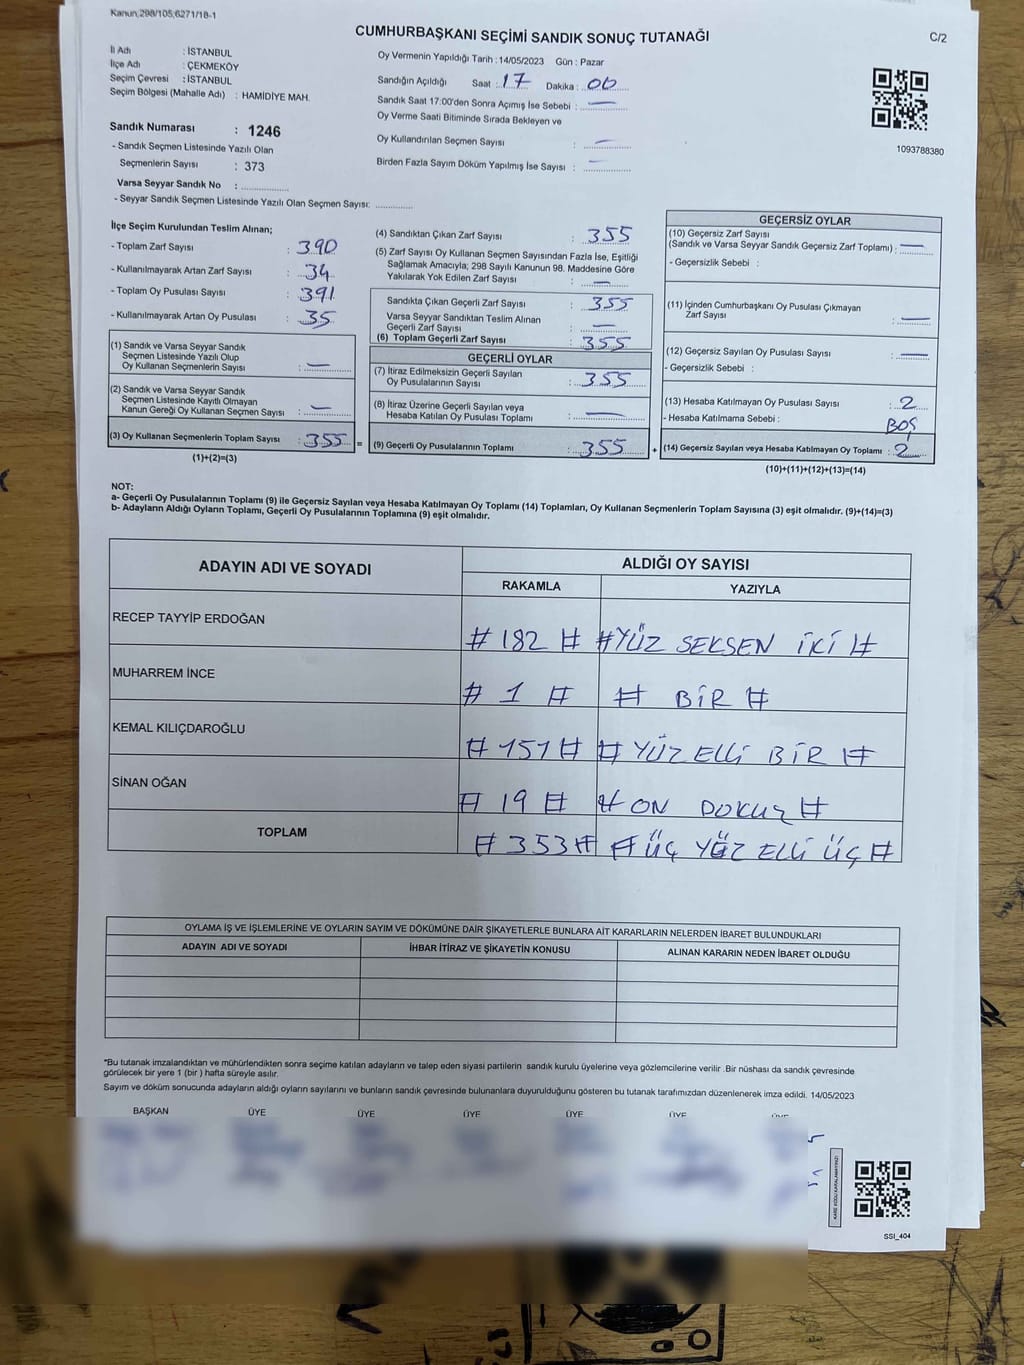 Kanun;298/105;6271/18-1
CUMHURBAŞKANI SEÇİMİ SANDIK SONUÇ TUTANAĞI
C/2
İl Adı : İSTANBUL
İlçe Adı : ÇEKMEKÖY
Seçim Çevresi : İSTANBUL
Seçim Bölgesi (Mahalle Adı) : HAMİDİYE MAH.
Sandık Numarası : 1246
- Sandık Seçmen Listesinde Yazılı Olan
Seçmenlerin Sayısı : 373
Varsa Seyyar Sandık No :
- Seyyar Sandık Seçmen Listesinde Yazılı Olan Seçmen Sayısı:
Oy Vermenin Yapıldığı Tarih : 14/05/2023 Gün : Pazar
Sandığın Açıldığı Saat : 17 Dakika : 00
Sandık Saat 17:00'den Sonra Açımış İse Sebebi : —
Oy Verme Saati Bitiminde Sırada Bekleyen ve
Oy Kullandırılan Seçmen Sayısı : —
Birden Fazla Sayım Döküm Yapılmış İse Sayısı : —
1093788380
İlçe Seçim Kurulundan Teslim Alınan;
- Toplam Zarf Sayısı : 390
- Kullanılmayarak Artan Zarf Sayısı : 34
- Toplam Oy Pusulası Sayısı : 391
- Kullanılmayarak Artan Oy Pusulası : 35
(1) Sandık ve Varsa Seyyar Sandık
Seçmen Listesinde Yazılı Olup
Oy Kullanan Seçmenlerin Sayısı : —
(2) Sandık ve Varsa Seyyar Sandık
Seçmen Listesinde Kayıtlı Olmayan
Kanun Gereği Oy Kullanan Seçmen Sayısı : —
(3) Oy Kullanan Seçmenlerin Toplam Sayısı : 355 =
(1)+(2)=(3)
(4) Sandıktan Çıkan Zarf Sayısı : 355
(5) Zarf Sayısı Oy Kullanan Seçmen Sayısından Fazla İse, Eşitliği
Sağlamak Amacıyla; 298 Sayılı Kanunun 98. Maddesine Göre
Yakılarak Yok Edilen Zarf Sayısı : —
Sandıkta Çıkan Geçerli Zarf Sayısı : 355
Varsa Seyyar Sandıktan Teslim Alınan
Geçerli Zarf Sayısı : —
(6) Toplam Geçerli Zarf Sayısı : 355
GEÇERLİ OYLAR
(7) İtiraz Edilmeksizin Geçerli Sayılan
Oy Pusulalarının Sayısı : 355
(8) İtiraz Üzerine Geçerli Sayılan veya
Hesaba Katılan Oy Pusulası Toplamı : —
(9) Geçerli Oy Pusulalarının Toplamı : 355 +
GEÇERSİZ OYLAR
(10) Geçersiz Zarf Sayısı
(Sandık ve Varsa Seyyar Sandık Geçersiz Zarf Toplamı) : —
- Geçersizlik Sebebi :
(11) İçinden Cumhurbaşkanı Oy Pusulası Çıkmayan
Zarf Sayısı : —
(12) Geçersiz Sayılan Oy Pusulası Sayısı : —
- Geçersizlik Sebebi :
(13) Hesaba Katılmayan Oy Pusulası Sayısı : 2
- Hesaba Katılmama Sebebi : BOŞ
(14) Geçersiz Sayılan veya Hesaba Katılmayan Oy Toplamı : 2
(10)+(11)+(12)+(13)=(14)
NOT:
a- Geçerli Oy Pusulalarının Toplamı (9) ile Geçersiz Sayılan veya Hesaba Katılmayan Oy Toplamı (14) Toplamları, Oy Kullanan Seçmenlerin Toplam Sayısına (3) eşit olmalıdır. (9)+(14)=(3)
b- Adayların Aldığı Oyların Toplamı, Geçerli Oy Pusulalarının Toplamına (9) eşit olmalıdır.
ADAYIN ADI VE SOYADI ALDIĞI OY SAYISI
RAKAMLA YAZIYLA
RECEP TAYYİP ERDOĞAN # 182 # # YÜZ SEKSEN İKİ #
MUHARREM İNCE # 1 # # BİR #
KEMAL KILIÇDAROĞLU # 151 # # YÜZ ELLİ BİR #
SİNAN OĞAN # 19 # # ON DOKUZ #
TOPLAM # 353 # # ÜÇ YÜZ ELLİ ÜÇ #
OYLAMA İŞ VE İŞLEMLERİNE VE OYLARIN SAYIM VE DÖKÜMÜNE DAİR ŞİKAYETLERLE BUNLARA AİT KARARLARIN NELERDEN İBARET BULUNDUKLARI
ADAYIN ADI VE SOYADI İHBAR İTİRAZ VE ŞİKAYETİN KONUSU ALINAN KARARIN NEDEN İBARET OLDUĞU
*Bu tutanak imzalandıktan ve mühürlendikten sonra seçime katılan adayların ve talep eden siyasi partilerin sandık kurulu üyelerine veya gözlemcilerine verilir. Bir nüshası da sandık çevresinde
görülecek bir yere 1 (bir ) hafta süreyle asılır.
Sayım ve döküm sonucunda adayların aldığı oyların sayılarını ve bunların sandık çevresinde bulunanlara duyurulduğunu gösteren bu tutanak tarafımızdan düzenlenerek imza edildi. 14/05/2023
BAŞKAN ÜYE ÜYE ÜYE ÜYE ÜYE ÜYE
SSI_404